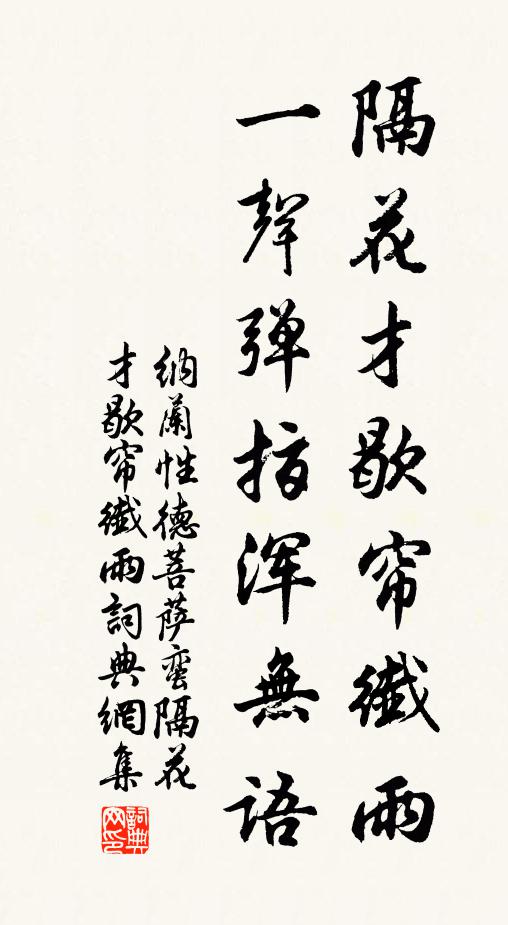 隔花才歇帘纖雨
一聲弹指浑無語
納蘭性德菩萨蛮隔花
才歇帘纖雨詞典網集
詞典
网印